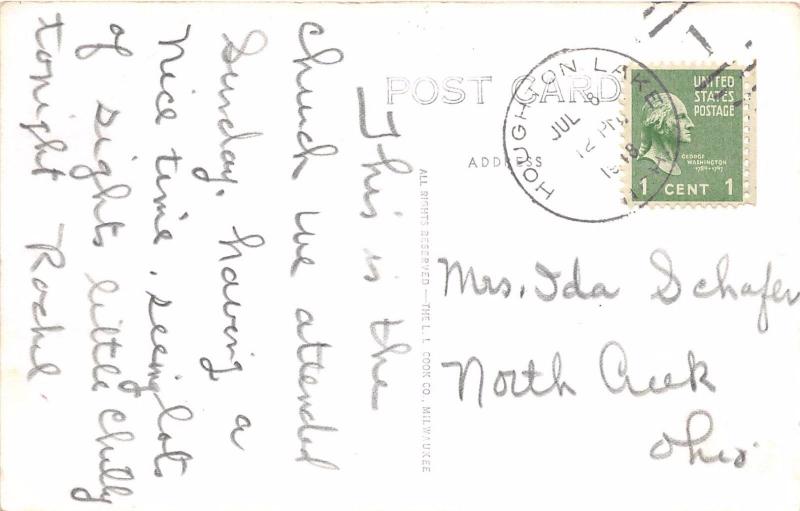 This is the
church we attended
Sunday, having a
nice time, seeing lots
of sights little chilly
tonight Rachel.
POST CARD
ADDRESS
ALL RIGHTS RESERVED — THE L. L. COOK CO., MILWAUKEE
HOUGHTON LAKE
JUL 8
12 PM
UNITED
STATES
POSTAGE
GEORGE
WASHINGTON
1789-1797
1 CENT 1
Mrs. Ida Schafer
North Creek
Ohio